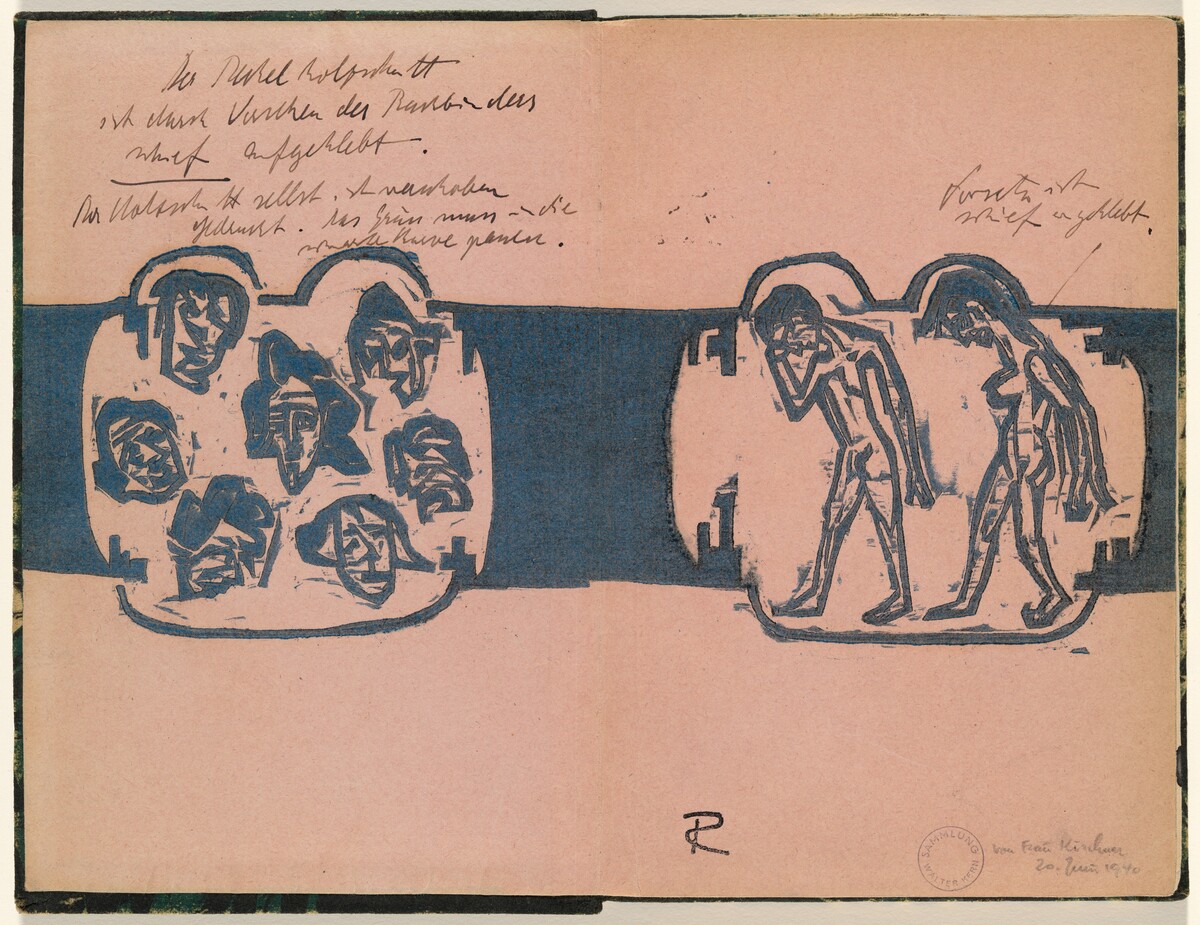 Der Deckel Holzschnitt
ist durch Versehen des Buchbinders
schief aufgeklebt.
Der Holzschnitt selbst ist verschoben
gedruckt. Das Grün muss in die
schwarze Kurve passen.
Vorsatz ist
schief angeklebt.
R
SAMMLUNG
WALTER KERN
von Frau Kirchner
20. 1940